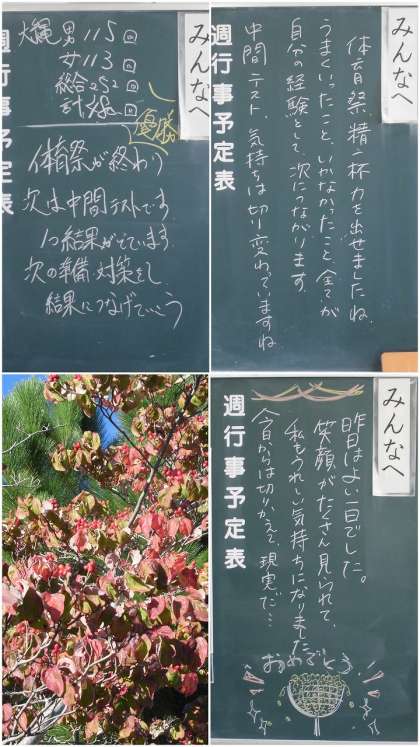 みんなへ
週行事予定表
大縄 男 115回
女 113回
総合 252回
優勝
体育祭が終わり
次は中間テストです
1つ結果がでています
次の準備・対策をし
結果につなげていこう
みんなへ
週行事予定表
体育祭、精一杯力を出せましたね。
うまくいったこと、いかなかったこと、全てが
自分の経験として、次につながります。
中間テスト、気持ちは切り変わっていますね
みんなへ
週行事予定表
昨日はよい一日でした。
笑顔がたくさん見られて、
私もうれしい気持ちになりました
今日からは切りかえて、現実だ…
おめでとう!